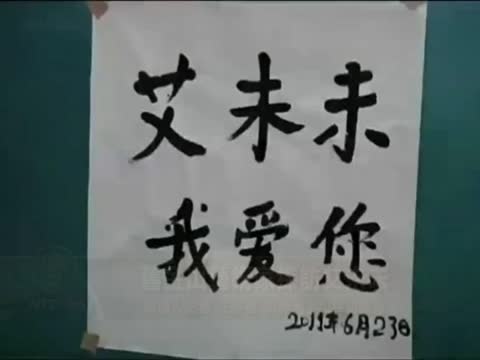 艾未未
我爱您
2011年6月23日